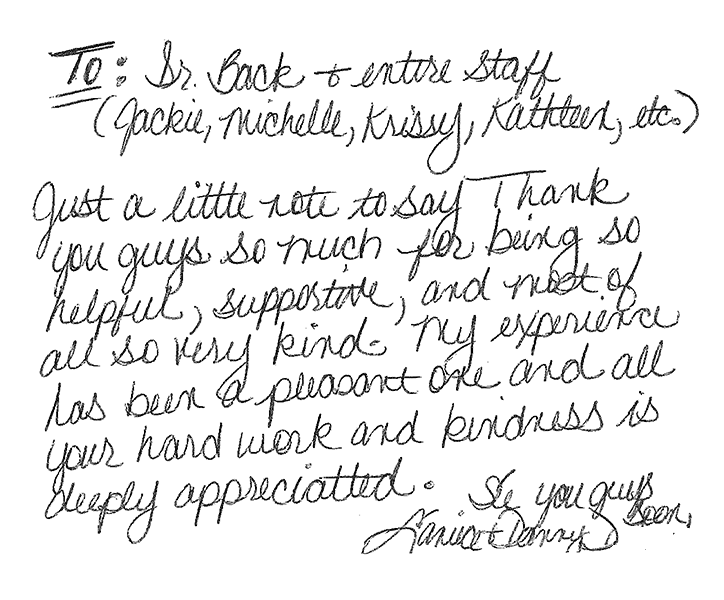 To: Dr. Back + entire staff
(Jackie, Michelle, Krissy, Kathleen, etc.)
Just a little note to say Thank
you guys so much for being so
helpful, supportive, and most of
all so very kind. My experience
has been a pleasant one and all
your hard work and kindness is
deeply appreciatted. See you guys
soon,
+ Danny